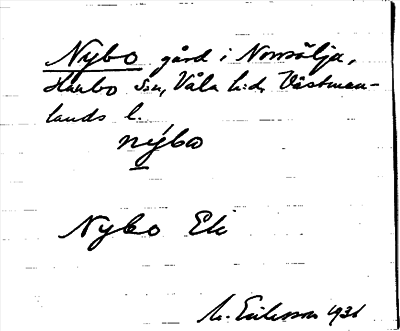 Nybo gård i Norrsälja,
Harbo Sn, Våla h:d, Västman-
lands l.
nýbω
Nybo Ek
M. Eriksson 1931